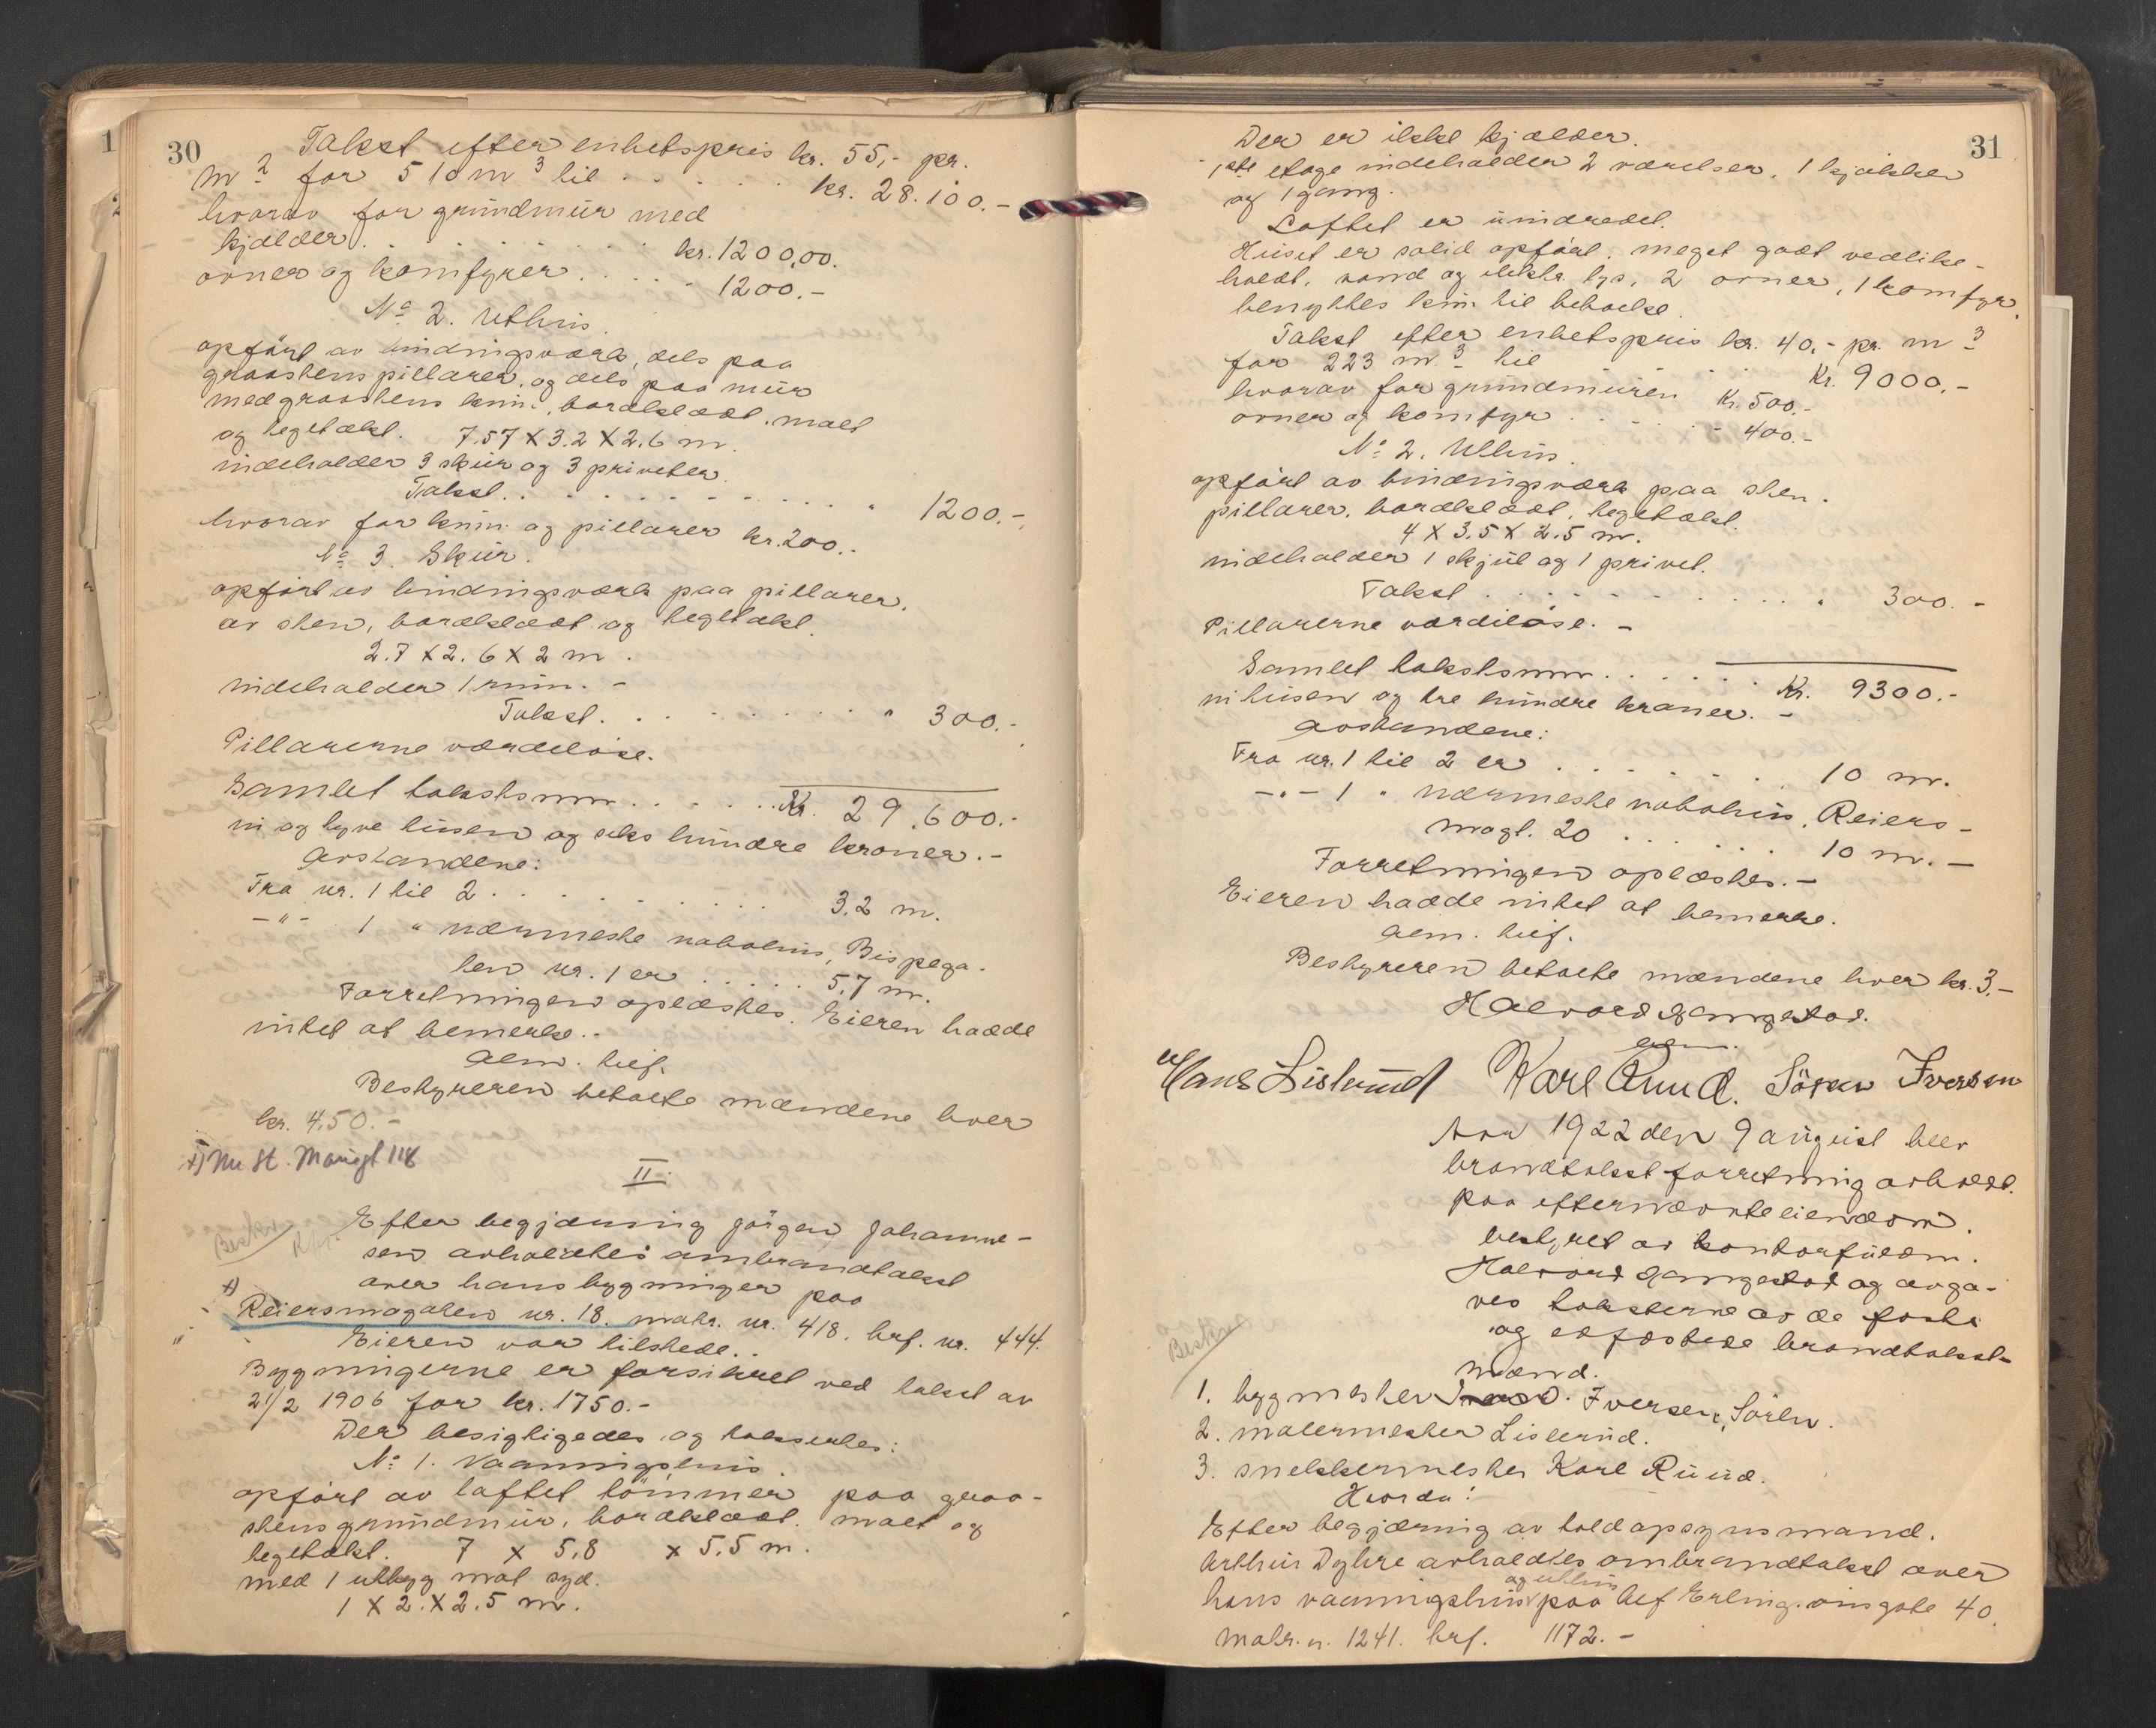 30
Takst efter enhetspris kr. 55,- pr.
m2 for 510 m3 til . . . . . kr. 28.100.-
hvorav for grundmur med
kjælder . . . . . . . . kr. 1200,00.
ovner og komfyrer . . . . 1200.-
No 2. Uthus.
opført av bindingsværk, dels paa
graastens pillarer, og dels paa mur
med graastens kum, bordklædt, malt
og tegltækt. 7.57 X 3.2 X 2.6 m.
indeholder 3 skur og 3 priveter.
Takst . . . . . . . . . . " 1200.-
hvorav for kum og pillarer kr. 200.-
No 3. Skur.
opført av bindingsværk paa pillarer,
av sten, bordklædt og tegltækt.
2.7 X 2.6 X 2 m.
indeholder 1 rum. -
Takst . . . . . . . . " 300.-
Pillarerne værdeløse.
Samlet takstsum . . . . . Kr. 29.600.-
ni og tyve tusen og seks hundre kroner.-
Avstandene:
Fra nr. 1 til 2 . . . . . . . . 3,2 m.
-"- 1 " nærmeste nabohus, Bispega-
ten nr. 1 er . . . . . 5,7 m.
Forretningen oplæstes. Eieren hadde
intet at bemerke.-
Alm. tief.
Bestyreren betalte mændene hver
kr. 4,50.-
+) Nu St. Mariegt 118
II.
Efter begjæring Jørgen Johanne-
sen avholdtes ombrandtakst
over hans bygninger paa
+) Reiersmogaten nr. 18. matr. nr. 418. brf. nr. 444.
Eieren var tilstede.
Bygningerne er forsikret ved takst av
21/2 1906 for kr. 1750.-
Der besigtigedes og takseredes:
No 1. Vaaningshus.
opført av laftet tømmer paa graa-
stens grundmur, bordklædt. malt og
tegltækt. 7 x 5,8 x 5,5 m.
med 1 utbyg mot syd.
1 X 2. X 2.5 m.
31
Der er ikke kjælder.
1ste etage indeholder 2 værelser, 1 kjøkken
og 1 gang.
Loftet er uindredet.
Huset er solid opført, meget godt vedlike-
holdt, vand og elektr. lys, 2 ovner, 1 komfyr,
benyttes kun til beboelse.
Takst efter enhetspris kr. 40,- pr. m3
for 223 m3 til . . . . . Kr. 9000.-
hvorav for grundmuren Kr. 500.-
ovner og komfyr . . . . . - 400.-
No 2. Uthus.
opført av bindingsværk paa sten-
pillarer, bordklædt, tegltækt.
4 X 3.5 X 2.5 m.
indeholder 1 skjul og 1 privet.
Takst . . . . . . . . . . 300.-
Pillarerne værdiløse.-
Samlet takstsum . . . . . . Kr. 9300.-
ni tusen og tre hundre kroner.-
Avstandene:
Fra nr. 1 til 2 er . . . . . . . 10 m.
-"- 1 " nærmeste nabohus, Reiers-
mogt. 20 . . . . . . 10 m.-
Forretningen oplæstes.-
Eieren hadde intet at bemerke.
Alm. tief.
Bestyreren betalte mændene hver kr. 3,-
Halvord Gangestad.
Hans Lislerud Karl Ruud. Sören Iversen
Aar 1922 den 9 august blev
brandtakstforretning avholdt
paa efternævnte eiendom.
bestyret av kontorfuldm.
Halvord Gangestad og avga-
ves taksterne av de faste
og edfæstede brandtakst-
mænd.
1. bygmester Iversen, Søren.
2. malermester Lislerud.
3. snekkermester Karl Ruud.
Hvorda:
Efter begjæring av toldopsynsmand.
Arthur Dyhre avholdtes ombrandtakst over
hans vaaningshus og uthus paa Alf Erlingsønsgate 40
matr. n. 1241. brf. 1172.-